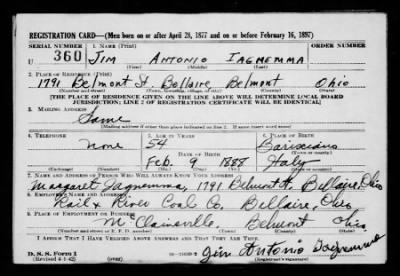 REGISTRATION CARD—(Men born on or after April 28, 1877 and on or before February 16, 1897)
SERIAL NUMBER 1. NAME (Print) ORDER NUMBER
U 360 JIM ANTONIO IAGNEMMA
(First) (Middle) (Last)
2. PLACE OF RESIDENCE (Print)
1791 Belmont St. Bellaire Belmont Ohio
(Number and street) (Town, township, village, or city) (County) (State)
[THE PLACE OF RESIDENCE GIVEN ON THE LINE ABOVE WILL DETERMINE LOCAL BOARD
JURISDICTION; LINE 2 OF REGISTRATION CERTIFICATE WILL BE IDENTICAL]
3. MAILING ADDRESS
Same
[Mailing address if other than place indicated on line 2. If same insert word same]
4. TELEPHONE 5. AGE IN YEARS 6. PLACE OF BIRTH
None 54 Bariscians
DATE OF BIRTH (Town or county)
Feb. 9 1888 Italy
(Mo.) (Day) (Yr.) (State or country)
7. NAME AND ADDRESS OF PERSON WHO WILL ALWAYS KNOW YOUR ADDRESS
Margaret Iagnemma, 1791 Belmont St., Bellaire, Ohio
8. EMPLOYER'S NAME AND ADDRESS
Rail & River Coal Co. Bellaire, Ohio
9. PLACE OF EMPLOYMENT OR BUSINESS
Mc Clainsville, Belmont Ohio
(Number and street or R. F. D. number) (Town) (County) (State)
I AFFIRM THAT I HAVE VERIFIED ABOVE ANSWERS AND THAT THEY ARE TRUE.
D. S. S. Form 1
(Revised 4-1-42) Jim Antonio Iagnemma